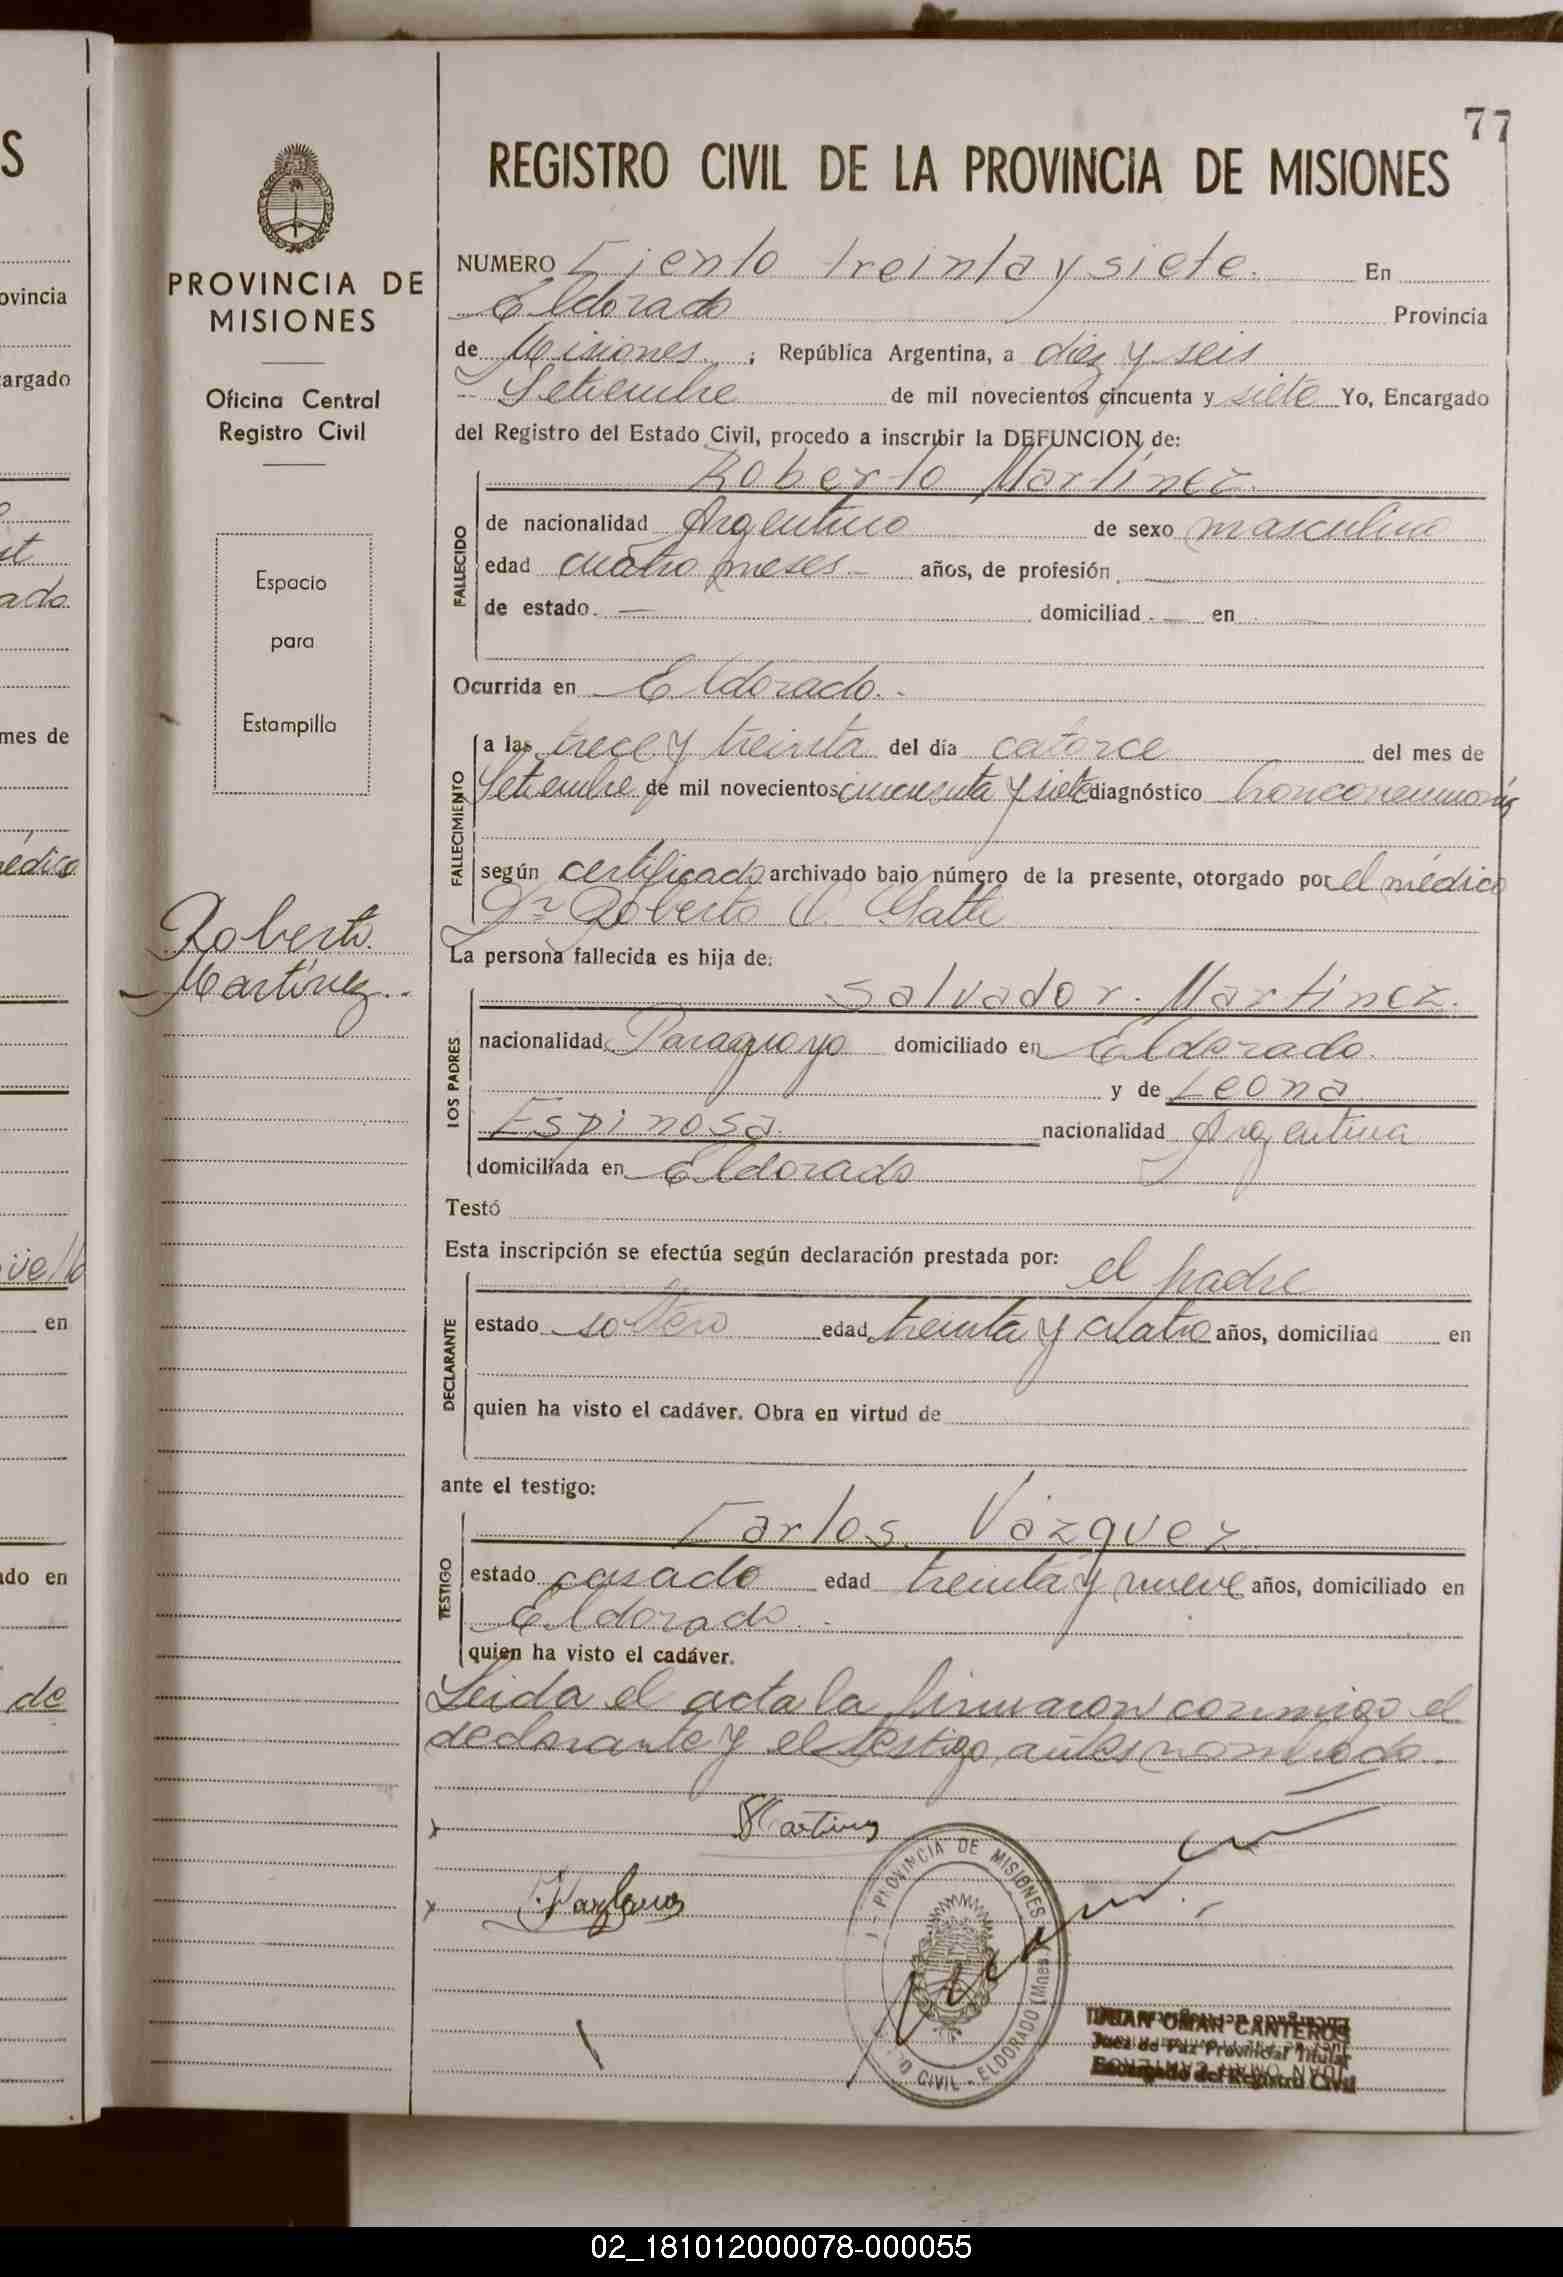 77
REGISTRO CIVIL DE LA PROVINCIA DE MISIONES
PROVINCIA DE
MISIONES
Oficina Central
Registro Civil
Espacio
para
Estampilla
Roberto
Martínez
NUMERO Ciento treinta y siete. En
Eldorado Provincia
de Misiones, República Argentina, a diez y seis
Setiembre de mil novecientos cincuenta y siete Yo, Encargado
del Registro del Estado Civil, procedo a inscribir la DEFUNCION de:
Roberto Martínez
FALLECIDO
de nacionalidad Argentino de sexo masculino
edad cuatro meses años, de profesión —
de estado — domiciliad — en —
Ocurrida en Eldorado.
FALLECIMIENTO
a las trece y treinta del día catorce del mes de
Setiembre de mil novecientos cincuenta y siete diagnóstico
según certificado archivado bajo número de la presente, otorgado por el médico
Dr Roberto O. Gatti
La persona fallecida es hija de:
LOS PADRES
Salvador Martínez.
nacionalidad Paraguayo domiciliado en Eldorado.
y de Leona
Espinosa nacionalidad Argentina
domiciliada en Eldorado
Testó
Esta inscripción se efectúa según declaración prestada por:
el padre
DECLARANTE
estado soltero edad treinta y cuatro años, domiciliad en
quien ha visto el cadáver. Obra en virtud de
ante el testigo:
Carlos Vázquez
TESTIGO
estado casado edad treinta y nueve años, domiciliado en
Eldorado.
quien ha visto el cadáver.
Leida el acta la firmaron conmigo el
declarante y el testigo antes nombrado.
PROVINCIA DE MISIONES
CIVIL - ELDORADO (Mnes)
JUAN OMAR CANTEROS
Juez de Paz Provincial Titular
Encargado del Registro Civil
S
ovincia
argado
ado.
mes de
médico
en
ado en
de
02_181012000078-000055